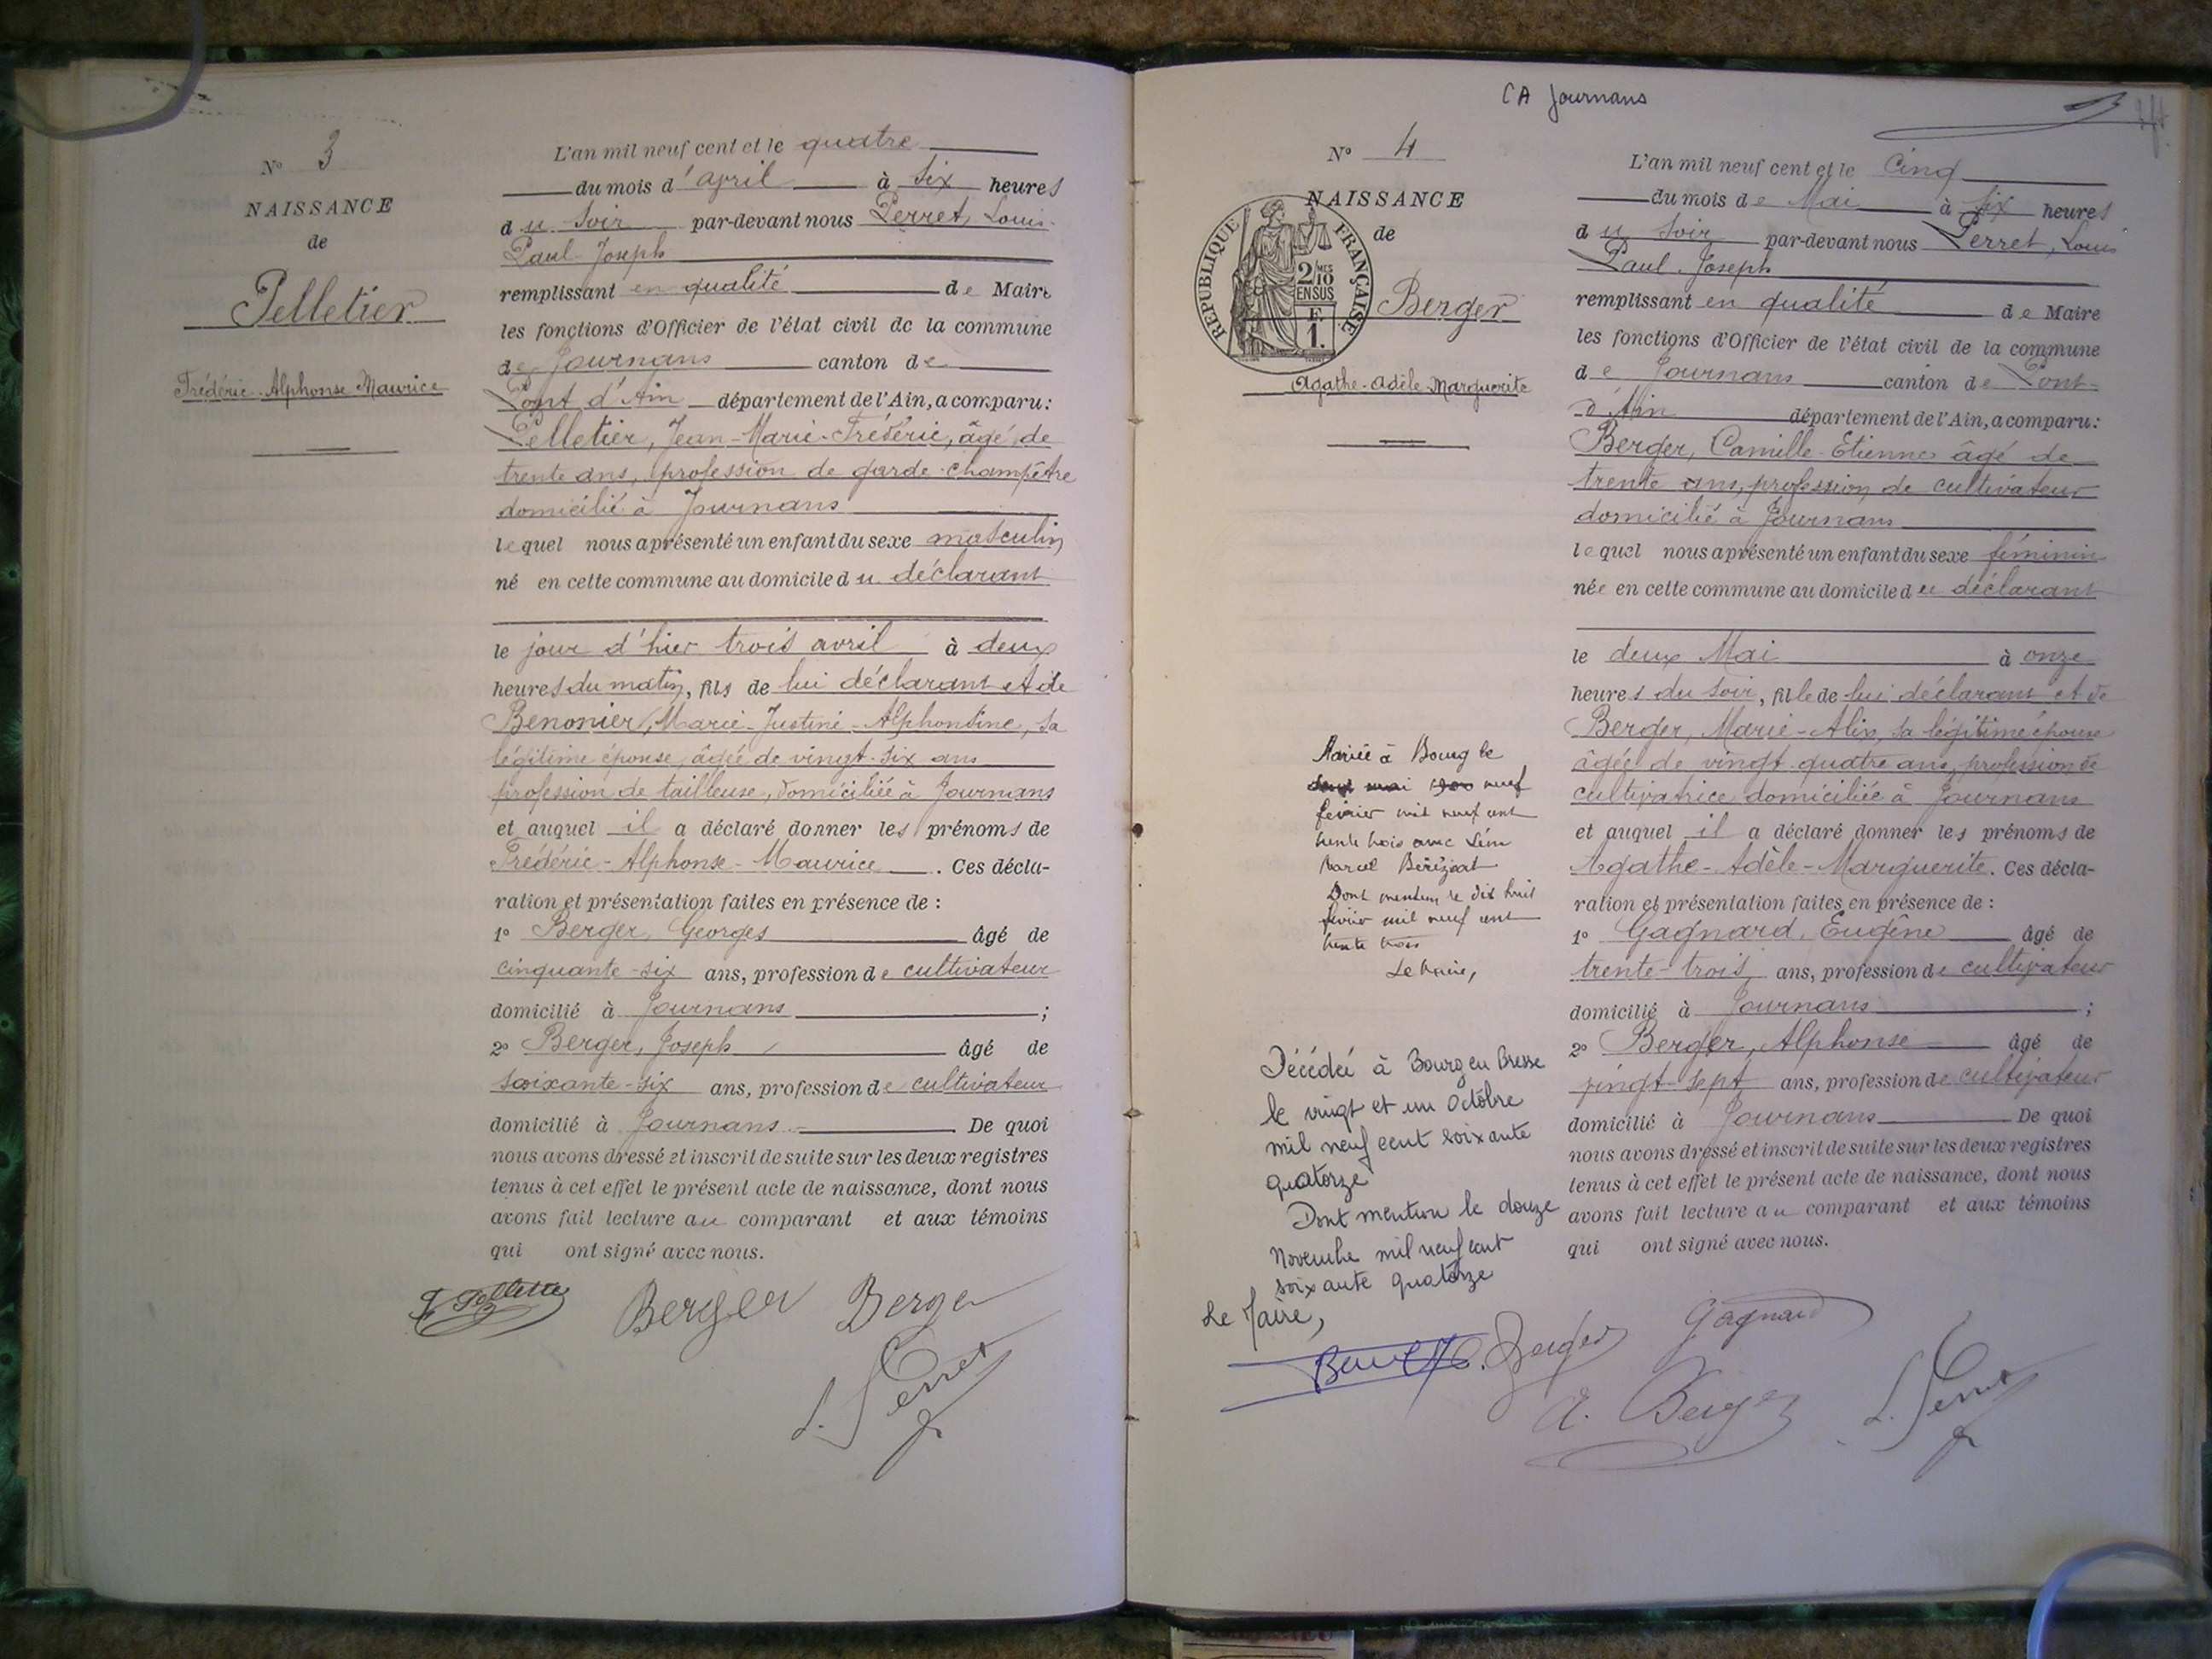 N° 3
NAISSANCE
de
Pelletier
Frédéric-Alphonse-Maurice
L'an mil neuf cent et le quatre
du mois d'april à six heures
du soir par-devant nous Perret, Louis-
Paul-Joseph
remplissant en qualité de Maire
les fonctions d'Officier de l'état civil de la commune
de Journans canton de
Pont d'Ain département de l'Ain, a comparu:
Pelletier, Jean-Marie-Frédéric, âgé de
trente ans, profession de garde-champêtre
domicilié à Journans
lequel nous a présenté un enfant du sexe masculin
né en cette commune au domicile du déclarant
le jour d'hier trois avril à deux
heures du matin, fils de lui déclarant et de
Benonier, Marie-Justine-Alphonsine, sa
légitime épouse, âgée de vingt-six ans
profession de tailleuse, domiciliée à Journans
et auquel il a déclaré donner les prénoms de
Frédéric-Alphonse-Maurice. Ces décla-
ration et présentation faites en présence de :
1° Berger, Georges âgé de
cinquante-six ans, profession de cultivateur
domicilié à Journans ;
2° Berger, Joseph âgé de
soixante-six ans, profession de cultivateur
domicilié à Journans De quoi
nous avons dressé et inscrit de suite sur les deux registres
tenus à cet effet le présent acte de naissance, dont nous
avons fait lecture au comparant et aux témoins
qui ont signé avec nous.
Berger Berger
L. Perret
CA Journans
N° 4
NAISSANCE
de
REPUBLIQUE FRANÇAISE
2/10 MES
EN SUS
F.
1.
Berger
Agathe-Adèle-Marguerite
Mariée à Bourg le
mai 1900 neuf
février mil neuf cent
trente trois avec Léon
Marcel Bérézeat
Dont mention le dix huit
février mil neuf cent
trente trois
Le Maire,
Décédée à Bourg en Bresse
le vingt et un Octobre
mil neuf cent soixante
quatorze
Dont mention le douze
Novembre mil neuf cent
soixante quatorze
Le Maire,
L'an mil neuf cent et le Cinq
du mois de Mai à six heures
du soir par-devant nous Perret, Louis
Paul-Joseph
remplissant en qualité de Maire
les fonctions d'Officier de l'état civil de la commune
de Journans canton de Pont-
d'Ain département de l'Ain, a comparu:
Berger, Camille-Etienne âgé de
trente ans, profession de cultivateur
domicilié à Journans
lequel nous a présenté un enfant du sexe féminin
née en cette commune au domicile du déclarant
le deux Mai à onze
heures du soir, fille de lui déclarant et de
Berger, Marie-Alix, sa légitime épouse
âgée de vingt-quatre ans, profession de
cultivatrice domiciliée à Journans
et auquel il a déclaré donner les prénoms de
Agathe-Adèle-Marguerite. Ces décla-
ration et présentation faites en présence de :
1° Gagnard, Eugène âgé de
trente-trois ans, profession de cultivateur
domicilié à Journans ;
2° Berger, Alphonse âgé de
vingt-sept ans, profession de cultivateur
domicilié à Journans De quoi
nous avons dressé et inscrit de suite sur les deux registres
tenus à cet effet le présent acte de naissance, dont nous
avons fait lecture au comparant et aux témoins
qui ont signé avec nous.
C. Berger Gagnard
A. Berger L. Perret